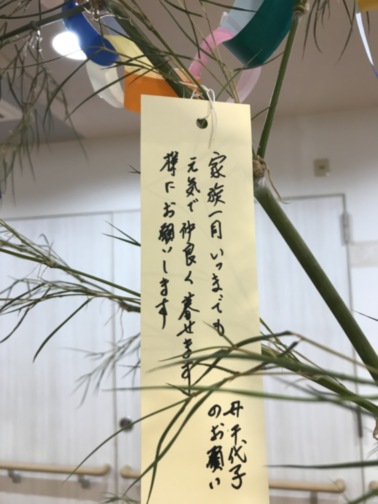 家族一同いつまでも
元気で仲良く暮せます
様にお願いします
丹千代子
のお願い